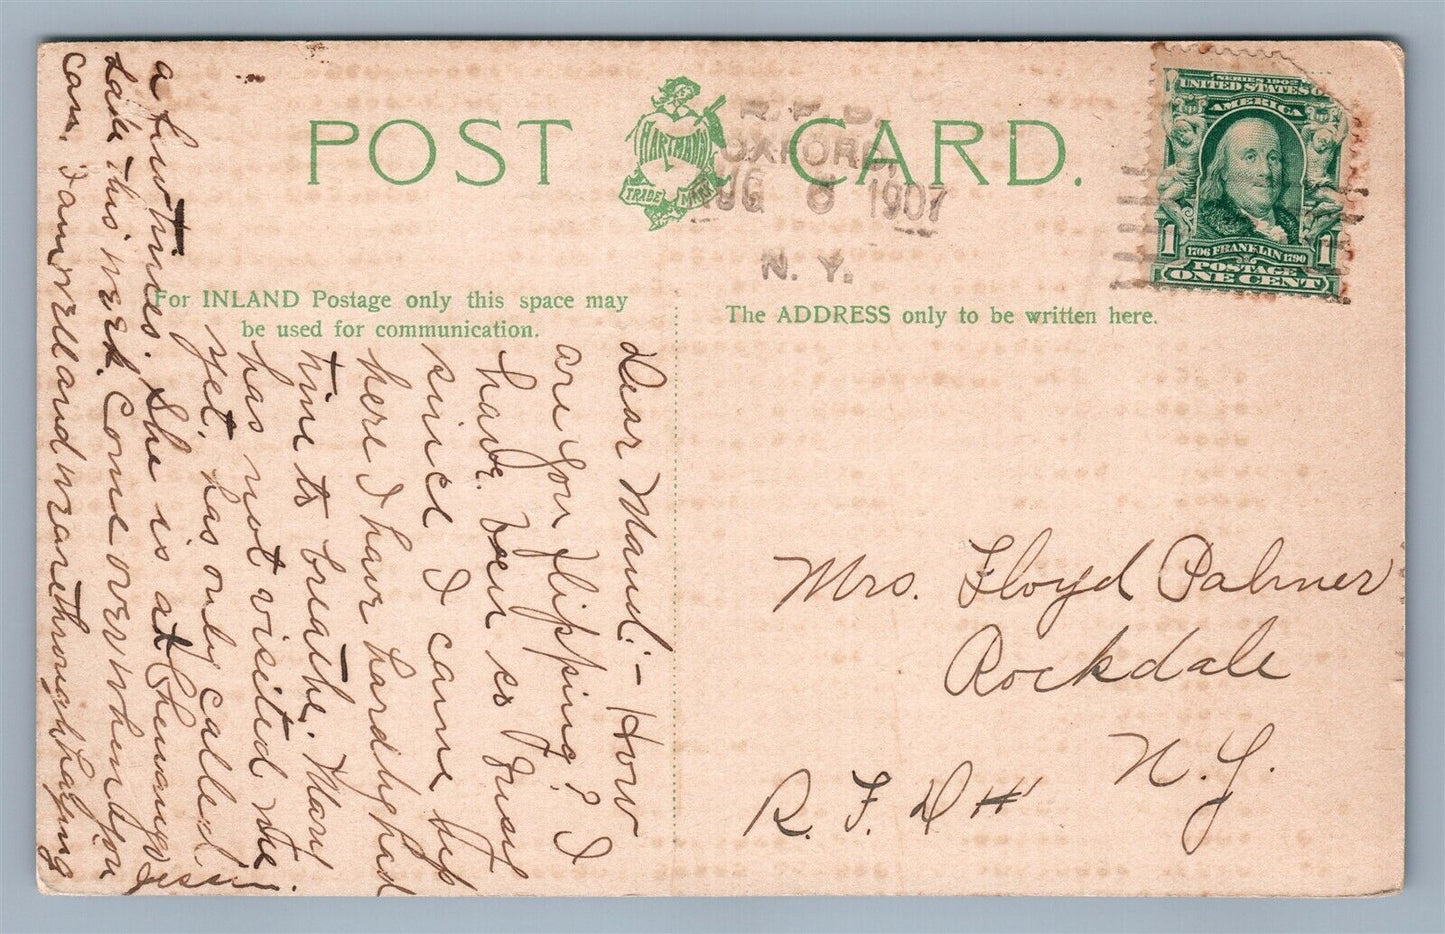 POST CARD.
HARTMANN
TRADE MARK
R.F.D.
OXFORD,
UG 8 1907
N. Y.
SERIES 1902
UNITED STATES O
AMERICA
1 1706 FRANKLIN 1790 1
POSTAGE
ONE CENT
For INLAND Postage only this space may
be used for communication.
The ADDRESS only to be written here.
Dear Maud:- How
are you flipping? I
have been so busy
since I came up
here I have hardly had
time to breathe. Mary
has not visited me
yet, has only called
a few times. She is at Chenango
Lake this week. Come over when you
can. I am well and we are through haying
Jessie.
Mrs. Floyd Palmer
Rockdale
N.Y.
R. F. D #1